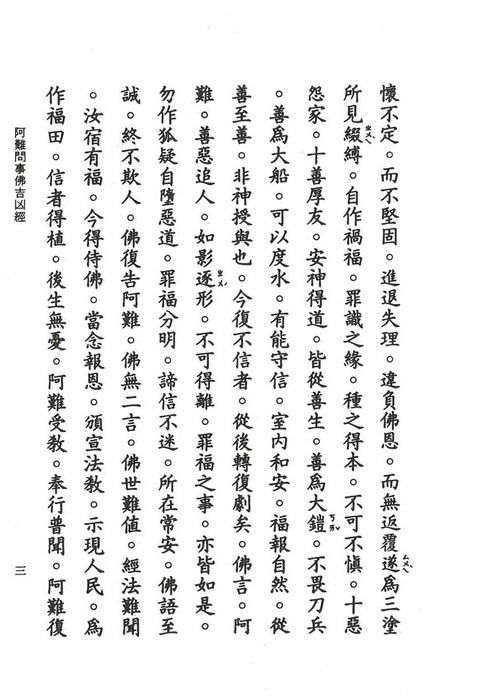 懷不定。而不堅固。進退失理。違負佛恩。而無返覆遂為三塗
ㄙㄨㄟˋ
所見綴縛。自作禍福。罪識之緣。種之得本。不可不慎。十惡
ㄓㄨㄟˋ
怨家。十善厚友。安神得道。皆從善生。善為大鎧。不畏刀兵
ㄎㄞˇ
。善為大船。可以度水。有能守信。室內和安。福報自然。從
善至善。非神授與也。今復不信者。從後轉復劇矣。佛言。阿
難。善惡追人。如影逐形。不可得離。罪福之事。亦皆如是。
ㄓㄨˊ
勿作狐疑自墮惡道。罪福分明。諦信不迷。所在常安。佛語至
誠。終不欺人。佛復告阿難。佛無二言。佛世難值。經法難聞
。汝宿有福。今得侍佛。當念報恩。頒宣法教。示現人民。為
作福田。信者得植。後生無憂。阿難受教。奉行普聞。阿難復
阿難問事佛吉凶經
三